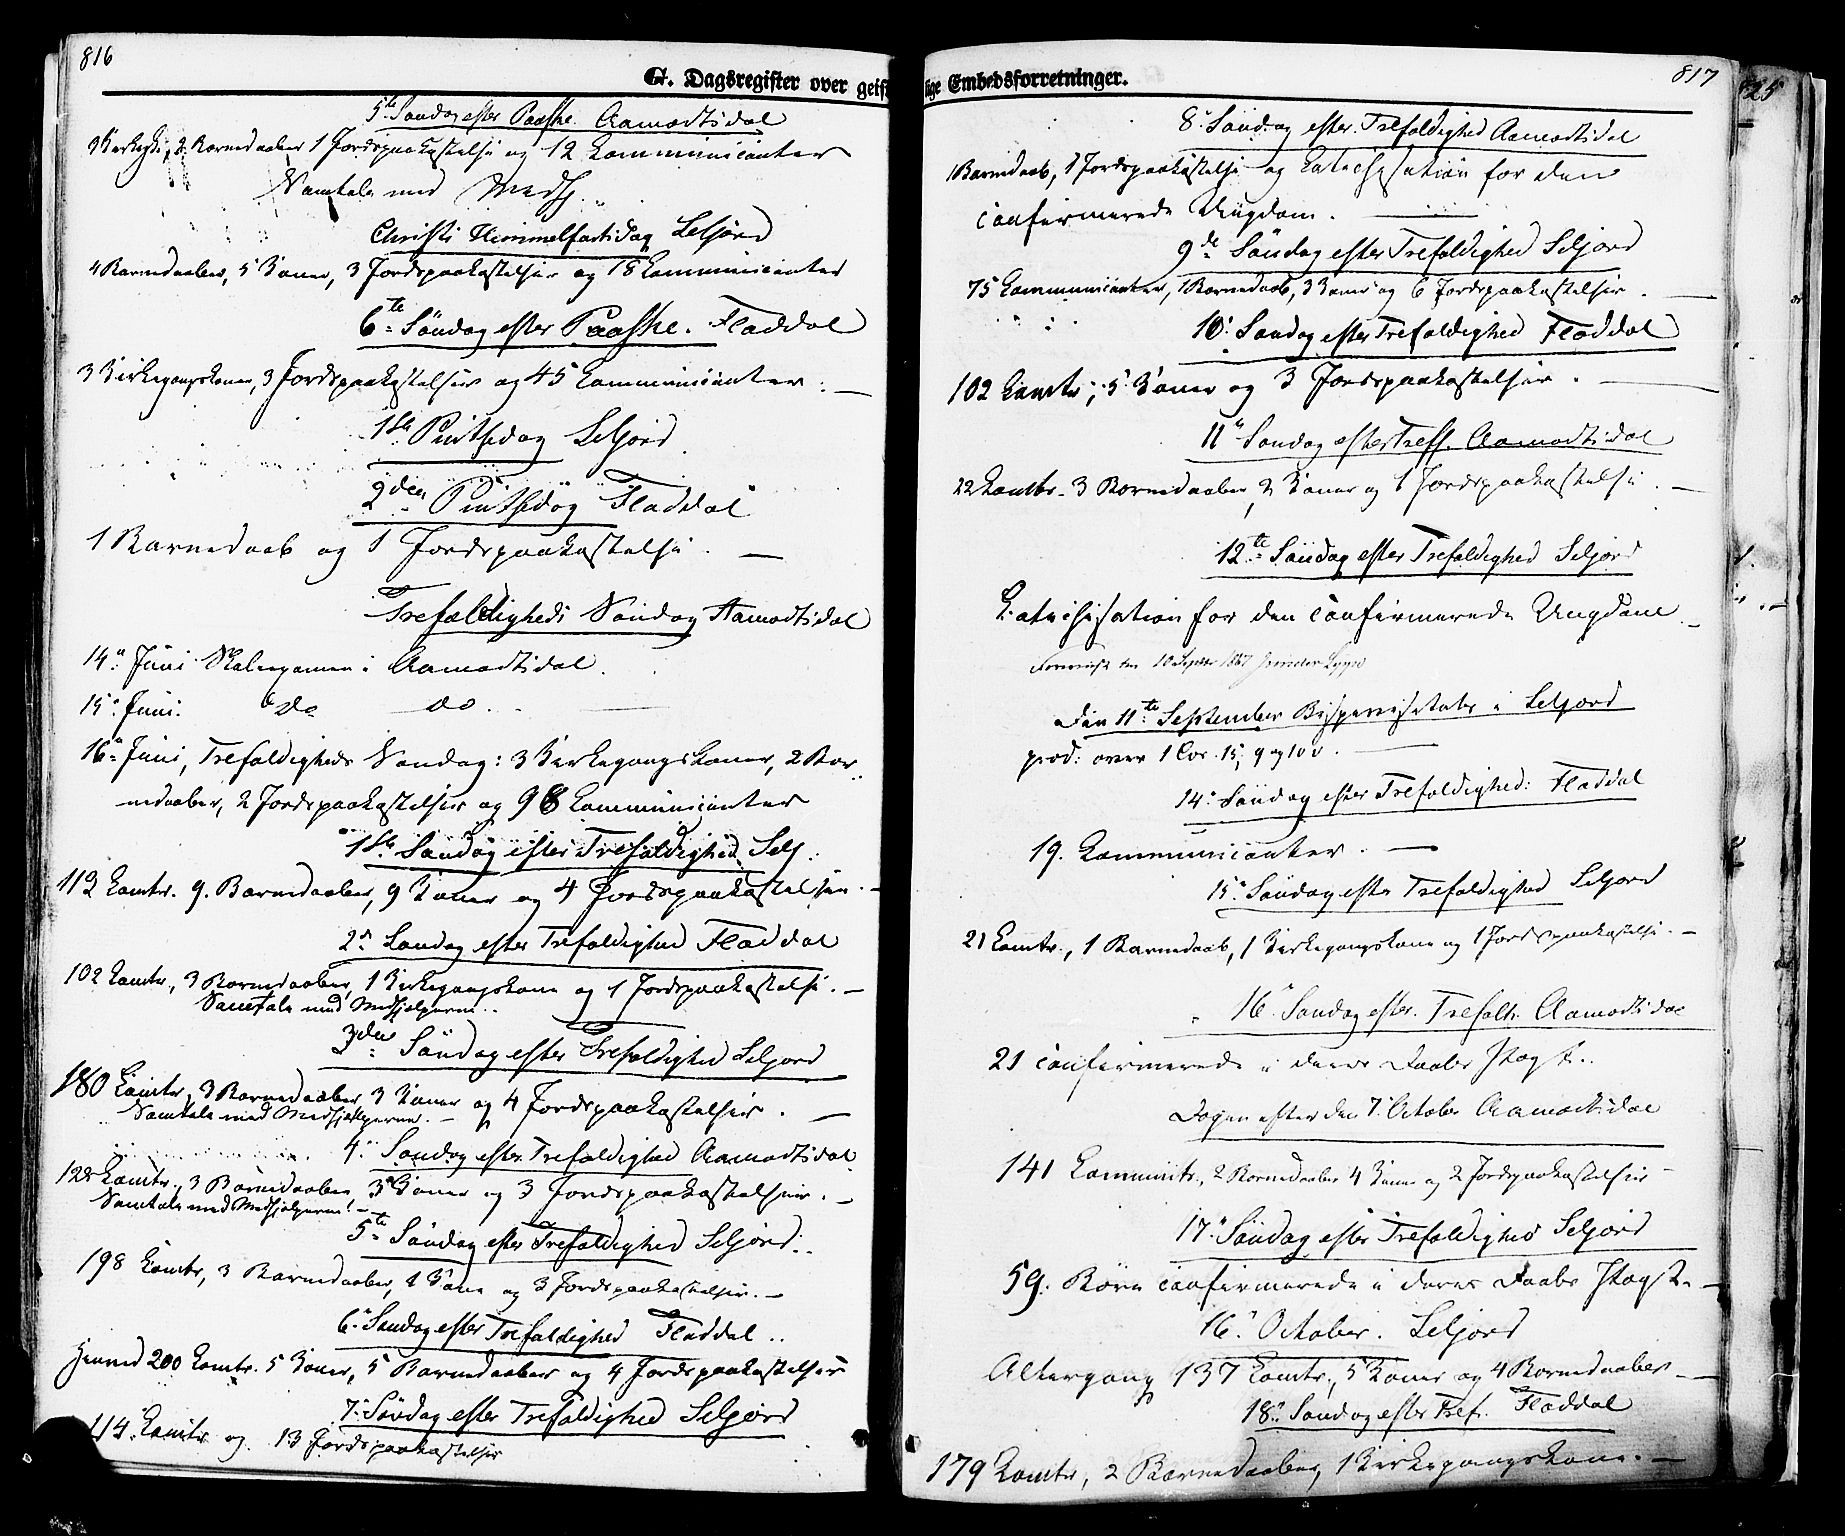 816
G. Dagsregister over geist
5te Søndag efter Paaske. Aamodtsdal
3 Kirkegk., 2 Barnedaaber 1 Jordspaakastelse og 12 Communicanter
Samtale med Medhj.
Christi Himmelfartsdag Seljord
4 Barnedaaber, 5 Koner, 3 Jordspaakastelser og 18 Communicanter
6te Søndag efter Paaske. Fladdal
3 Kirkegangskoner, 3 Jordspaakastelser og 45 Communicanter. —
1ste Pintsedag Seljord
2den Pintsedag Fladdal
1 Barnedaab og 1 Jordspaakastelse. —
Trefoldigheds Søndag Aamodtsdal
14de Juni Skoleexamen i Aamodtsdal.
15de Juni. do do.
16de Juni, Trefoldigheds Søndag: 3 Kirkegangskoner, 2 Bar
nedaaber, 2 Jordspaakastelser og 98 Communicanter
1ste Søndag efter Trefoldighed Selj.
112 Comtr. 9. Barnedaaber, 9 Koner og 4 Jordspaakastelser. —
2n Søndag efter Trefoldighed Fladdal
102 Comtr., 3 Barnedaaber, 1 Kirkegangskone og 1 Jordspaakastelse. —
Samtale med Medhjælperne..
3die Søndag efter Trefoldighed Seljord
180 Comtr, 3 Barnedaaber 3 Koner og 4 Jordspaakastelser. —
Samtale med Medhjælperne. —
4. Søndag efter Trefoldighed Aamodtsdal
128 Comtr., 3 Barnedaaber, 3 Koner og 3 Jordspaakastelser. —
Samtale med Medhjælperne! —
5te Søndag efter Trefoldighed Seljord.
198 Comtr, 3 Barnedaaber, 1 Kone og 3 Jordspaakastelser. —
6. Søndag efter Trefoldighed Fladdal..
Henved 200 Comtr. 5 Koner, 5 Barnedaaber og 4 Jordspaakastelser
7. Søndag efter Trefoldighed Seljord
114. Comtr og 13 Jordspaakastelser
817
lige Embedsforretninger.
8. Søndag efter Trefoldighed Aamodtsdal
1 Barnedaab, 1 Jordspaakastelse og Catechisation for den
confirmerede Ungdom. —
9de Søndag efter Trefoldighed Seljord
75 Communicanter, 1 Barnedaab, 3 Koner og 6 Jordspaakastelser. —
10. Søndag efter Trefoldighed Fladdal
102 Comtr; 5 Koner og 3 Jordspaakastelser. —
11. Søndag efter Tref. Aamodtsdal
22 Comtr. 3 Barnedaaber, 2 Koner og 1 Jordspaakastelse. —
12te Søndag efter Trefoldighed Seljord
Catechisation for den confirmerede Ungdom. —
den 10 Septbr 1867
Den 11te September Bispevisitats i Seljord
præd: over 1 Cor. 15, 9 og 10 v. —
14. Søndag efter Trefoldighed: Fladdal
19. Communicanter. —
15. Søndag efter Trefoldighed Seljord
21 Comtr., 1 Barnedaab, 1 Kirkegangskone og 1 Jordspaakastelse. —
16. Søndag efter. Trefoldh. Aamodtsdal
21 confirmerede i deres Daabs Pagt..
Dagen efter den 7. October Aamodtsdal
141 Communtr., 2 Barnedaaber 4 Koner og 2 Jordspaakastelser —
17. Søndag efter Trefoldighed Seljord
59. Børn confirmerede i deres Daabs Pagt. —
16. October. Seljord
Altergang 137 Comtr., 5 Koner og 4 Barnedaaber —
18. Søndag efter Tref. Fladdal
179 Comtr, 2 Barnedaaber, 1 Kirkegangskone. —